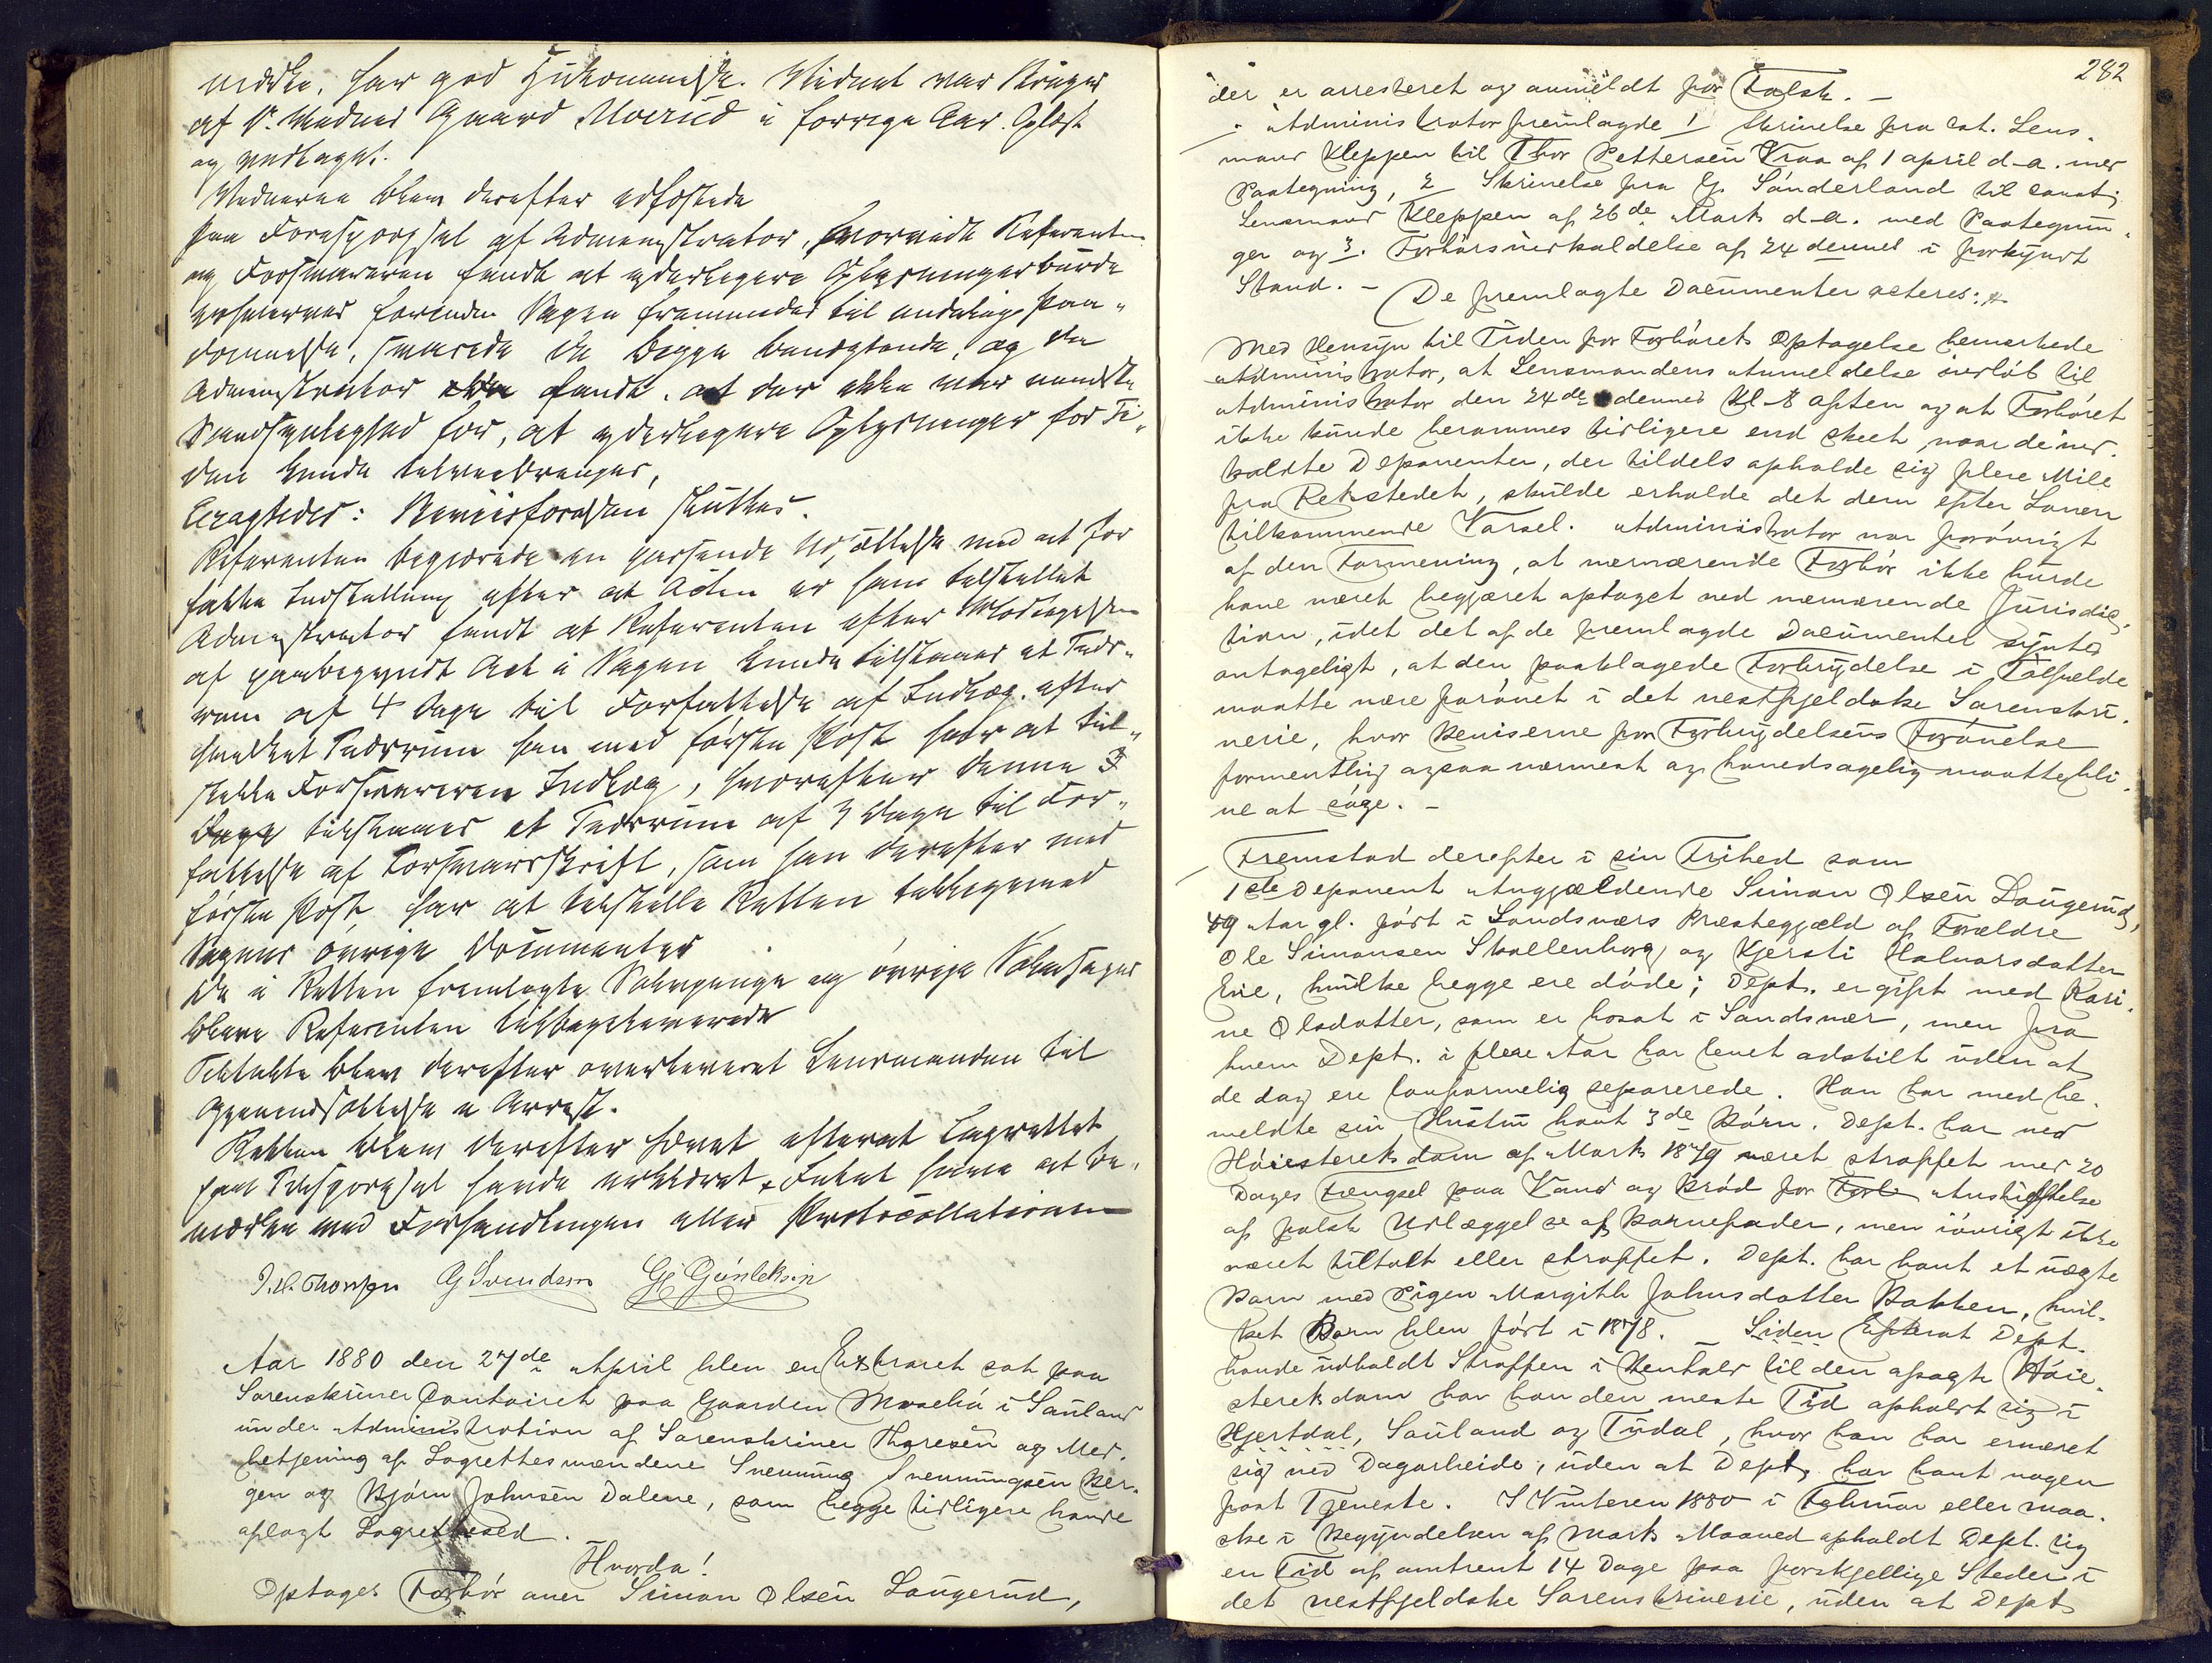 vidste, har god Hukommelse. Vidnet var Bruger
af Gaard Moerud i forrige Aar. Oplæst
og vedtaget.
Vidnerne blev derefter edfæstede
Paa Forespørgsel af Administrator, hvorvidt Referenten
og Forsvareren fandt at yderligere Oplysninger burde
erhverves forinden Sagen fremmedes til endelig Paa-
dømmelse, svarede de begge benægtende, og da
Administrator fandt, at der ikke var mindste
Sandsynlighed for, at yderligere Oplysninger for Ti-
den kunde tilveiebringes,
Eragtedes: Beviisførelsen sluttes.
Referenten begjærede en passende Udsættelse med at for
fatte Indstilling efter at Acten er ham tilstillet
Administrator fandt at Referenten efter Modtagelsen
af paabegyndt Act i Sagen kunde tilstaaes et Tids-
rum af 4 Dage til Forfattelse af Indlæg. efter
hvilket Tidsrum han med første Post har at til-
stille Forsvareren Indlæg, hvorefter denne 3
Dage tilstaaes et Tidsrum af 3 Dage til For-
fattelse af Forsvarsskrift, som han derefter med
første Post har at tilstille Retten tilligemed
Sagens øvrige Documenter
De i Retten fremlagte Sølvpenge og øvrige Sølvsager
bleve Referenten tilbageleverede
Tiltalte blev derefter overleveret Lensmanden til
Gjenindsættelse i Arrest.
Retten blev derefter hævet efterat Lagrettet
paa Tilspørgsel havde erklæret Intet have at be-
mærke ved Forhandlingen eller Protocollationen
G Svendsen G Gunleksen
Aar 1880 den 27de April blev en Extraret sat paa
Sorenskriver Contoiret paa Gaarden Mosebø i Sauland
under Administration af Sorenskriver Thoresen og Med-
betjening af Lagrettesmændene Svennung Svennungsen Ber-
gen og Bjørn Johnsen Dalene, som begge tidligere havde
aflagt Lagretteed.
Hvorda!
Optages Forhør over Simon Olsen Laugerud,
282
der er arresteret og anmeldt for Falsk. -
Administrator fremlagde 1 Skrivelse fra cst. Lens-
mand Kleppen til Thor Pettersen Vraa af 1 april d-a. med
Paategning, 2 Skrivelse fra G. Sønderland til const.
Lensmand Kleppen af 26de Marts d-a. med Paategnin-
ger og 3. Forhørsindkaldelse af 24 dennes i forkyndt
Stand. - De fremlagte Documenter acteres:
Med Hensyn til Tiden for Forhørets Optagelse bemærkede
Administrator, at Lensmandens Anmeldelse indløb til
Administrator den 24de dennes Kl 8 aften og at Forhøret
ikke kunde berammes tidligere end skeet naar de ind-
kaldte Deponenter, der tildels opholde sig flere Mile
fra Retsstedet, skulde erholde det dem efter Loven
tilkommende Varsel. Administrator var forøvrigt
af den Formening, at nærværende Forhør ikke burde
have været begjæret optaget ved nærværende Jurisdic-
tion, idet det af de fremlagde Documenter syntes
antageligt, at den paaklagede Forbrydelse i Tilfælde
maatte være forøvet i det vestfjeldske Sorenskri-
verie, hvor Beviserne for Forbrydelsens Forøvelse
formentlig ogsaa nærmest og hovedsagelig maatte bli-
ve at søge. -
Fremstod derefter i sin Frihed som
1ste Deponent Angjældende Simon Olsen Laugerud,
49 Aar gl. født i Sandsværs Præstegjæld af Forældre
Ole Simonsen Skollenborg og Kjersti Halvorsdatter
Eie, hvilke begge ere døde; Dept. er gift med Kari-
ne Olsdatter, som er bosat i Sandsvær, men fra
hvem Dept. i flere Aar har levet adskilt uden at
de dog ere lovformelig separerede. Han har med be-
meldte sin Hustru havt 3de Børn. Dept. har ved
Høiesteretsdom af Marts 1879 været straffet med 20
Dages Fængsel paa Vand og Brød for Anstiftelse
af falsk Udlæggelse af Barnefader, men iøvrigt ikke
været tiltalt eller straffet. Dept. har havt et uægte
Barn med Pigen Margith Johnsdatter Bakken, hvil-
ket Barn blev født i 1878. - Siden Efterat Dept.
havde udholdt Straffen i Henhold til den afsagte Høie-
steretsdom har han den meste Tid opholdt sig i
Hjertdal, Sauland og Tudal, hvor han har ernæret
sig ved Dagarbeide, uden at Dept. har havt nogen
fast Tjeneste. I Vinteren 1880 i Februar eller maa-
ske i Begyndelsen af Marts Maaned opholdt Dept. sig
en Tid af omtrent 14 Dage paa forskjellige Steder i
det vestfjeldske Sorenskriverie, uden at Dept